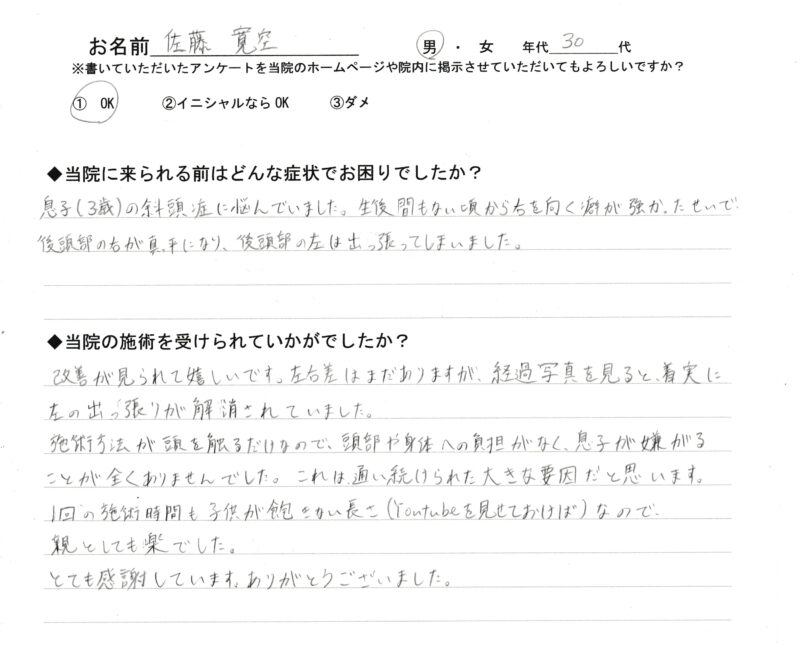 お名前 佐藤 寛空 男 ・ 女 年代 30 代
※書いていただいたアンケートを当院のホームページや院内に掲示させていただいてもよろしいですか？
① OK ②イニシャルならOK ③ダメ
◆当院に来られる前はどんな症状でお困りでしたか？
息子(3歳)の斜頭症に悩んでいました。生後間もない頃から右を向く癖が強かったせいで
後頭部の右が真っ平になり、後頭部の左は出っ張ってしまいました。
◆当院の施術を受けられていかがでしたか？
改善が見られて嬉しいです。左右差はまだありますが、経過写真を見ると、着実に
左の出っ張りが解消されていました。
施術方法が頭を触るだけなので、頭部や身体への負担がなく、息子が嫌がる
ことが全くありませんでした。これは通い続けられた大きな要因だと思います。
1回の施術時間も子供が飽きない長さ(Youtubeを見せておけば)なので、
親としても楽でした。
とても感謝しています。ありがとうございました。